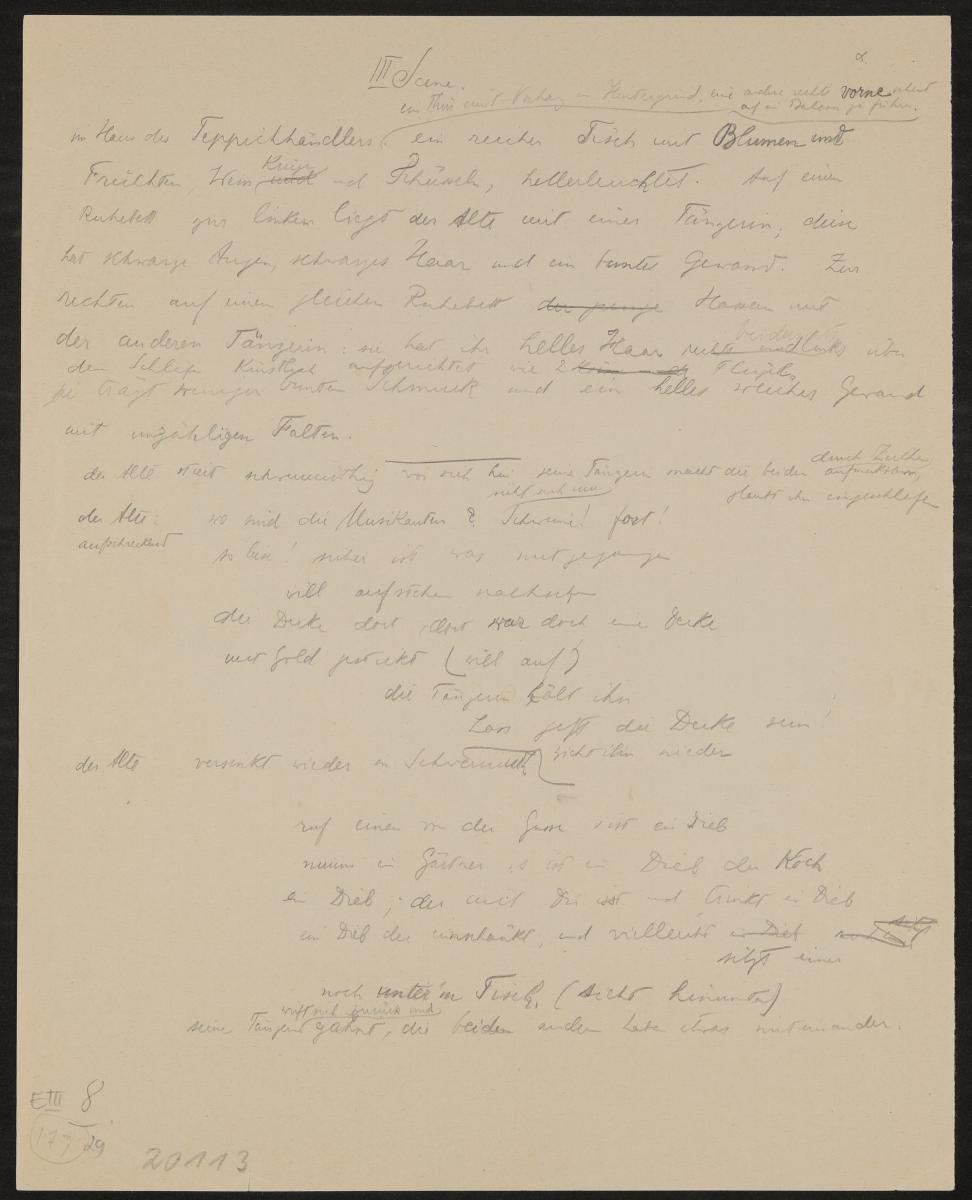 α.
III Scene.
ein Thür mit Vorhang im Hintergrund, eine andere rechts vorne scheint
auf ein Balcon zu führen.
im Haus des Teppichhändlers. ein reicher Tisch mit Blumen und
Krüge
Früchten, Wein und und Schüsseln, hellerleuchtet. Auf einem
Ruhebett zur linken liegt der Alte mit einer Tänzerin; diese
hat schwarze Augen, schwarzes Haar und ein buntes Gewand. Zur
rechten auf einem gleichen Ruhebett der junge Hassan mit
beiderseits
der anderen Tänzerin: sie hat ihr helles Haar rechts und links über
den Schläfen künstlich aufgerichtet wie 2 Flügel,
sie trägt weniger bunten Schmuck und ein helles weiches Gewand
mit unzähligen Falten.
der Alte starrt schwermüthig vor sich hin seine Tänzerin macht die beiden durch Zeichen aufmerksam,
glaubt ihn eingeschlafen
sieht sich um
der Alte: wo sind die Musikanten? Schweine! fort!
aufschreckend
so leise! sicher ist was mitgegangen
will aufstehen nachsehn
die Decke dort, dort war doch eine Decke
mit Gold gestickt (will auf)
die Tänzerin hält ihn
Lass die Decke sein!
zieht ihn nieder
der Alte versinkt wieder in Schwermuth
ruf einen von der Gasse ist ein Dieb
nimm ein Gärtner es ist ein Dieb der Koch
ein Dieb, der mit Dir isst und trinkt ein Dieb
ein Dieb der einschänkt, und vielleicht ein Dieb
sitzt einer
noch unter'm Tisch. (sieht hinunter)
wirft sich zurück und
seine Tänzerin gähnt, die beiden andern haben etwas miteinander.
E III 8
179
29
20113